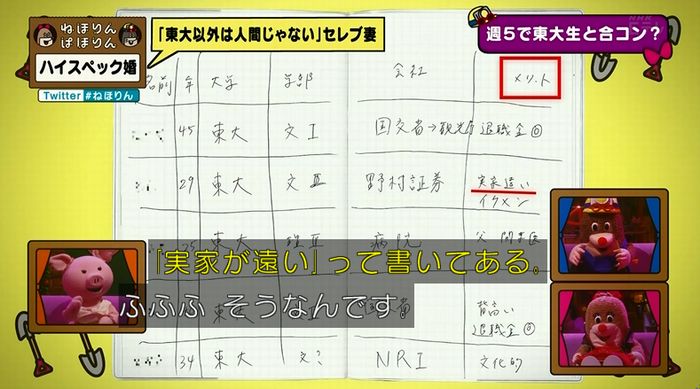 ねほりん
ぱほりん
ハイスペック婚
Twitter #ねほりん
「東大以外は人間じゃない」セレブ妻
NHK
週5で東大生と合コン?
名前 年 大学 学部 会社 メリット
45 東大 文I 国交省→観光庁 退職金◎
29 東大 文III 野村証券 実家遠い
イケメン
東大 理III 病院 父
「実家が遠い」って書いてある。
ふふふ そうなんです
背高い
退職金◎
34 東大 文? NRI 文化的